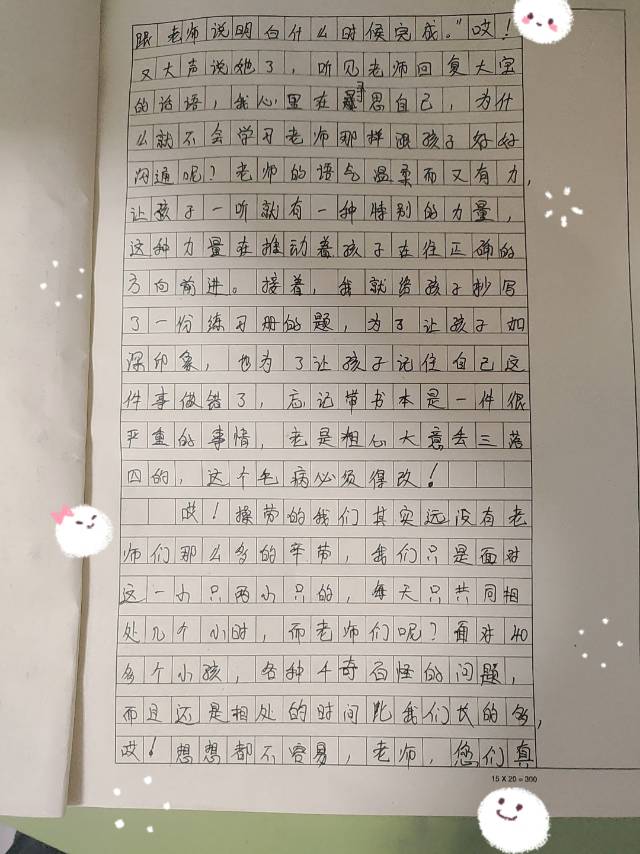 跟老师说明白什么时候完成。”哎！
又大声说他了，听见老师回复大宝
的话语，我心里在寻思自己，为什
么就不会学习老师那样跟孩子好好
沟通呢？老师的语气温柔而又有力，
让孩子一听就有一种特别的力量，
这种力量在推动着孩子在往正确的
方向前进。接着，我就给孩子抄写
了一份练习册的题，为了让孩子加
深印象，也为了让孩子记住自己这
件事做错了，忘记带书本是一件很
严重的事情，老是粗心大意丢三落
四的，这个毛病必须得改！
哎！操劳的我们其实远没有老
师们那么多的辛劳，我们只是面对
这一小只两小只的，每天只共同相
处几个小时，而老师们呢？面对40
多个小孩，各种千奇百怪的问题，
而且还是相处的时间比我们长的多，
哎！想想都不容易，老师，您们真
15×20=300